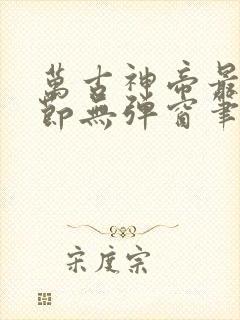 萬古神帝最
節無彈窗筆
宋度宗